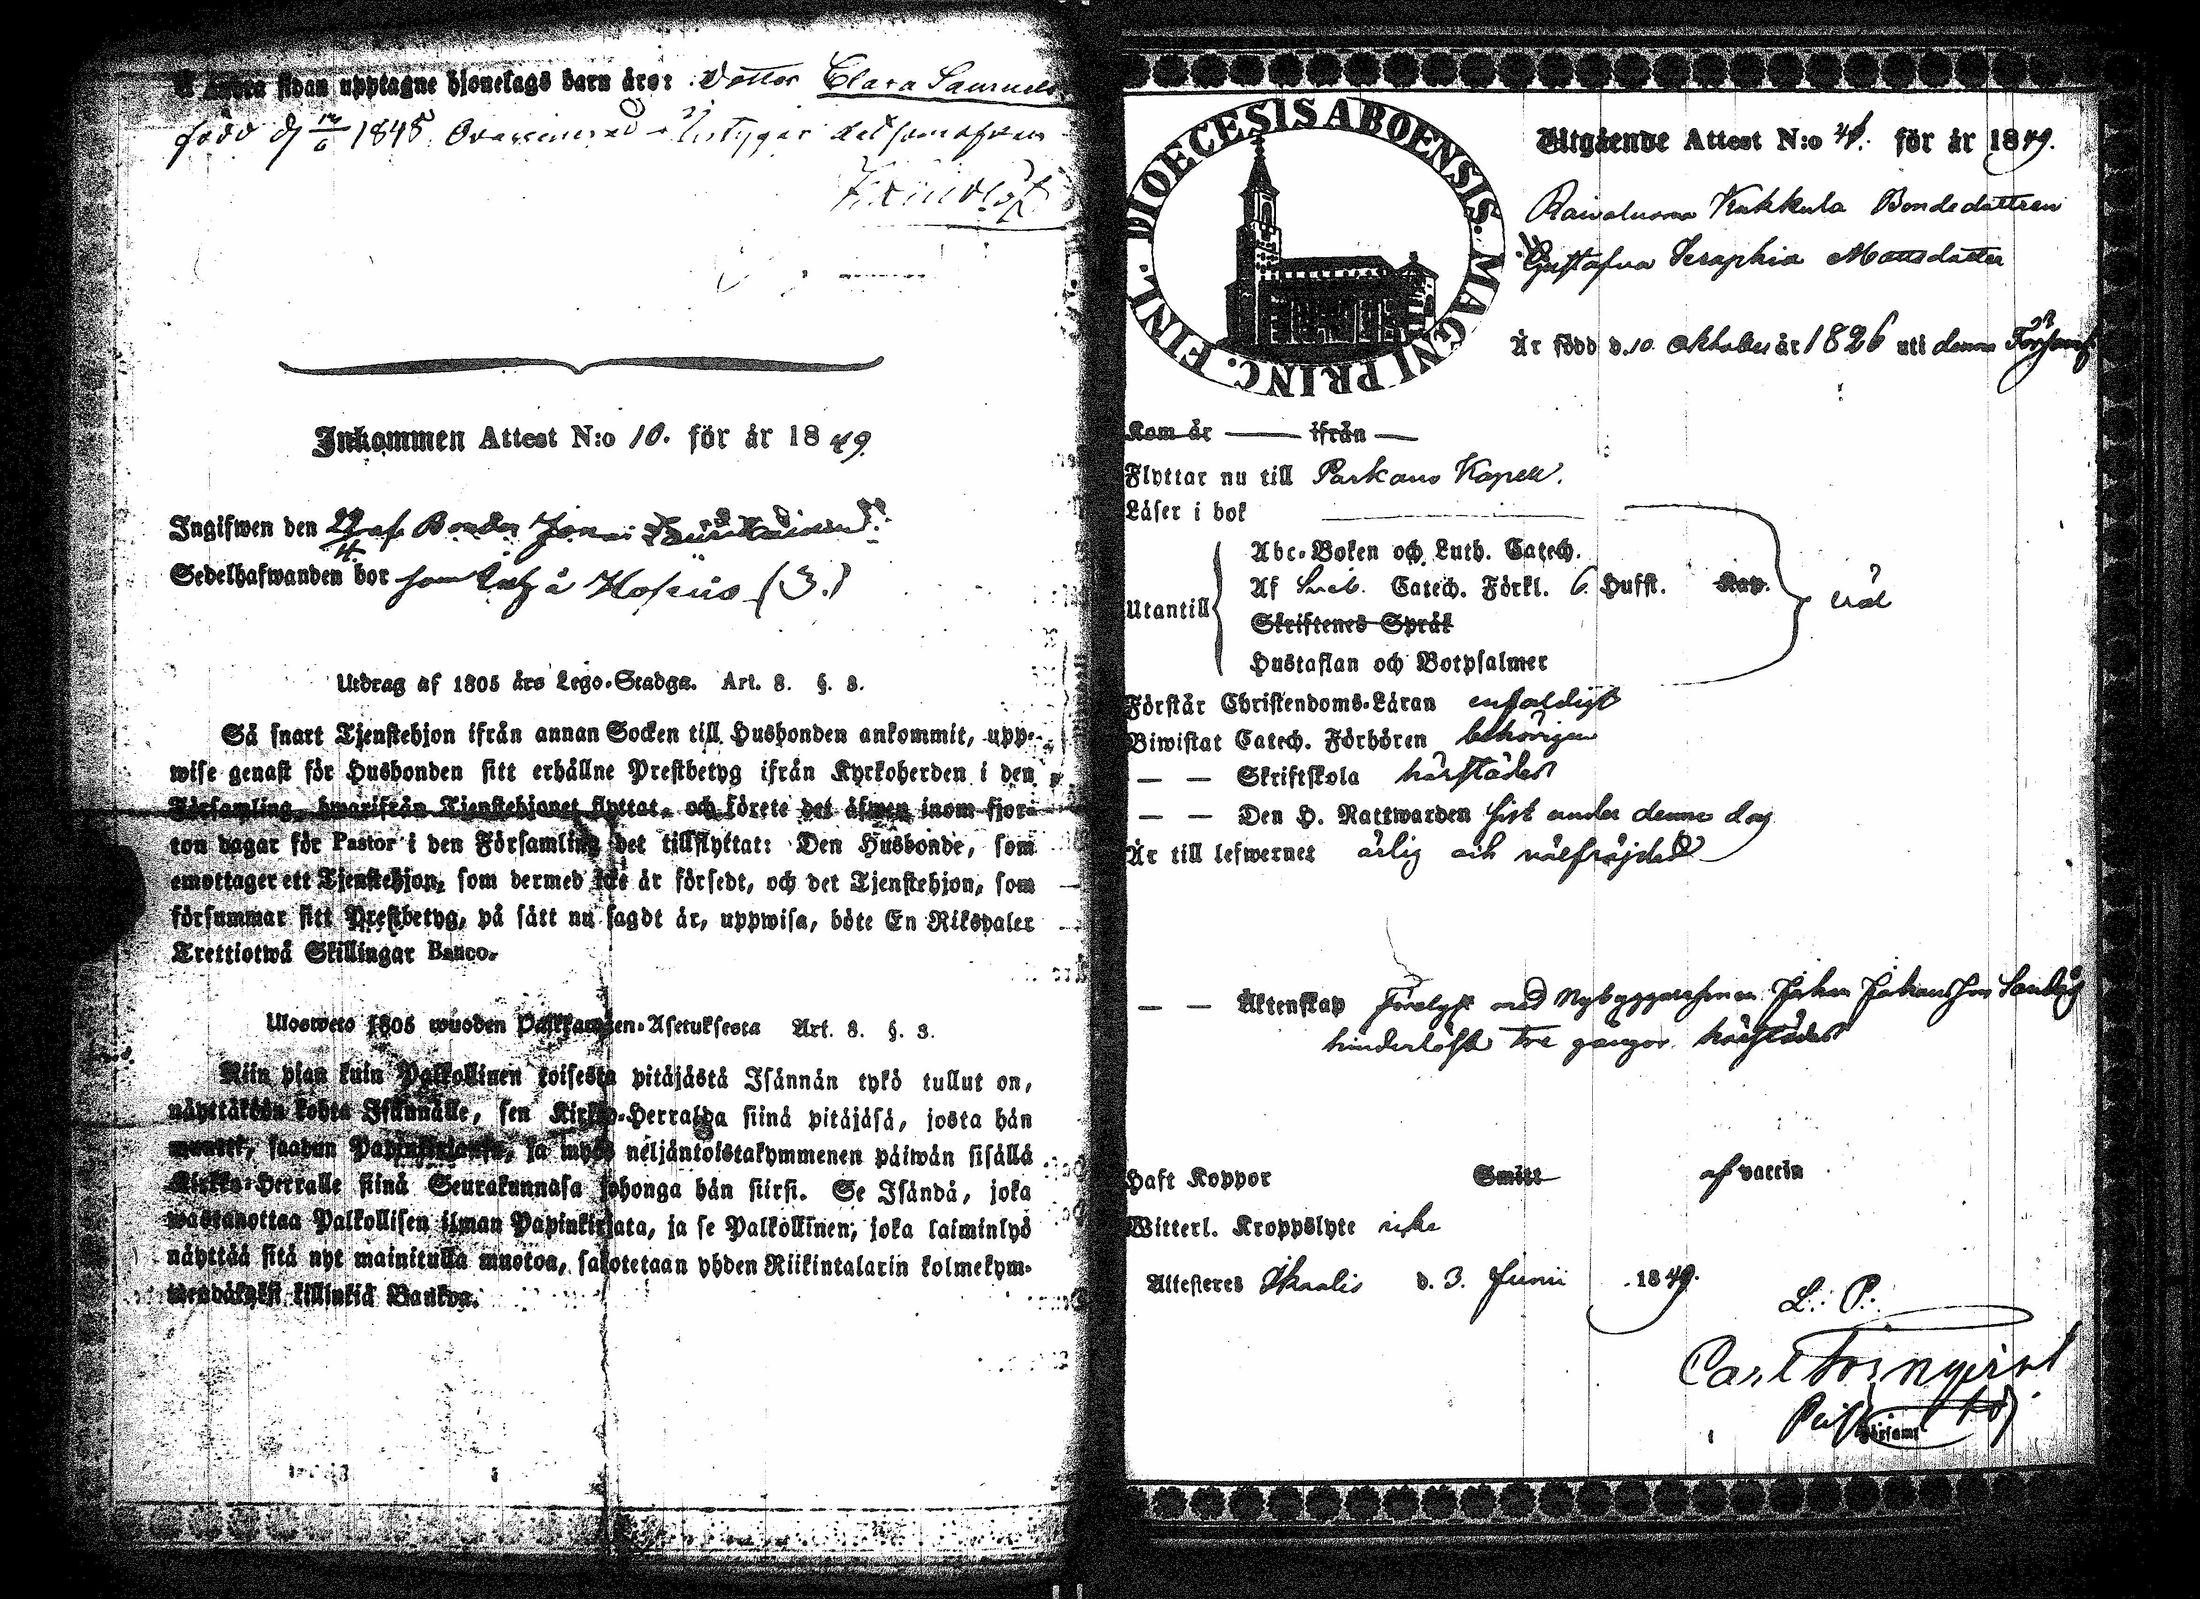 å andra sidan upptagne hjonelags barn äro: Dotter Clara Samuels
född d 1845.
Inkommen Attest N:o 10. för år 1849
Ingifwen den af Bonden
Sedelhafwanden bor
Utdrag af 1805 års Lego-Stadga. Art. 8. §. 3.
Så snart Tjenstehjon ifrån annan Socken till Husbonden ankommit, upp-
wise genast för Husbonden sitt erhållne Prestbetyg ifrån Kyrkoherden i den
Församling, hwarifrån Tjenstehjonet flyttat, och förete det äfwen inom fjor-
ton dagar för Pastor i den Församling det tillflyttat: Den Husbonde, som
emottager ett Tjenstehjon, som dermed icke är försedt, och det Tjenstehjon, som
försummar sitt Prestbetyg, på sätt nu sagdt är, uppwisa, böte En Riksdaler
Trettiotwå Skillingar Banco.
Ulosweto 1805 wuoden Palkkawäen-Asetuksesta Art. 8. §. 3.
Niin pian kuin Palkollinen toisesta pitäjästä Isännän tykö tullut on,
näyttäköön kohta Isännälle, sen Kirkko-Herralda siinä pitäjäsä, josta hän
muutti, saadun Papinkirjansa, ja myös neljäntoistakymmenen päiwän sisällä
Kirkko-Herralle siinä Seurakunnasa johonga hän siirsi. Se Isändä, joka
wastanottaa Palkollisen ilman Papinkirjata, ja se Palkollinen, joka laiminlyö
näyttää sitä nyt mainitulla muotoa, sakotetaan yhden Riikintalarin kolmekym-
mendäkaksi killinkiä Bankos.
DIOECESIS ABOENSIS. MAGNI PRINC. FINL.
Utgående Attest N:o för år 1849.
Kukkula Bondedottren
Gustafva Seraphia Mattsdotter
Är född d. 10 Oktober år 1826 uti denna Församl.
Kom år ifrån
Flyttar nu till Parkano Kapell.
Läser i bok
Abc-Boken och Luth. Catech.
Af Catech. Förkl. 6 Hufst. Kap.
Utantill
Skriftenes Språk
Hustaflan och Botpsalmer
Förstår Christendoms-Läran enfaldigt
Biwistat Catech. Förhören behörigen
— — Skriftskola härstädes
— — Den H. Nattwarden sist under denna dag
Är till lefwernet ärlig och välfräjdad
— — Äktenskap förelyst med Nybyggaresonen Johan Johansson
hinderlöst tre gånger härstädes
Haft Koppor Smitt af vaccin
Witterl. Kroppslyte icke
Attesteres Ikalis d. 3. Junii 1849.
L. P.
Carl Törnqvist